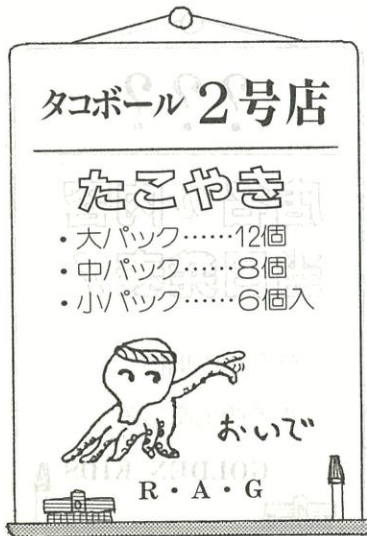 タコボール 2号店
たこやき
・大パック……12個
・中パック……8個
・小パック……6個入
おいで
R・A・G